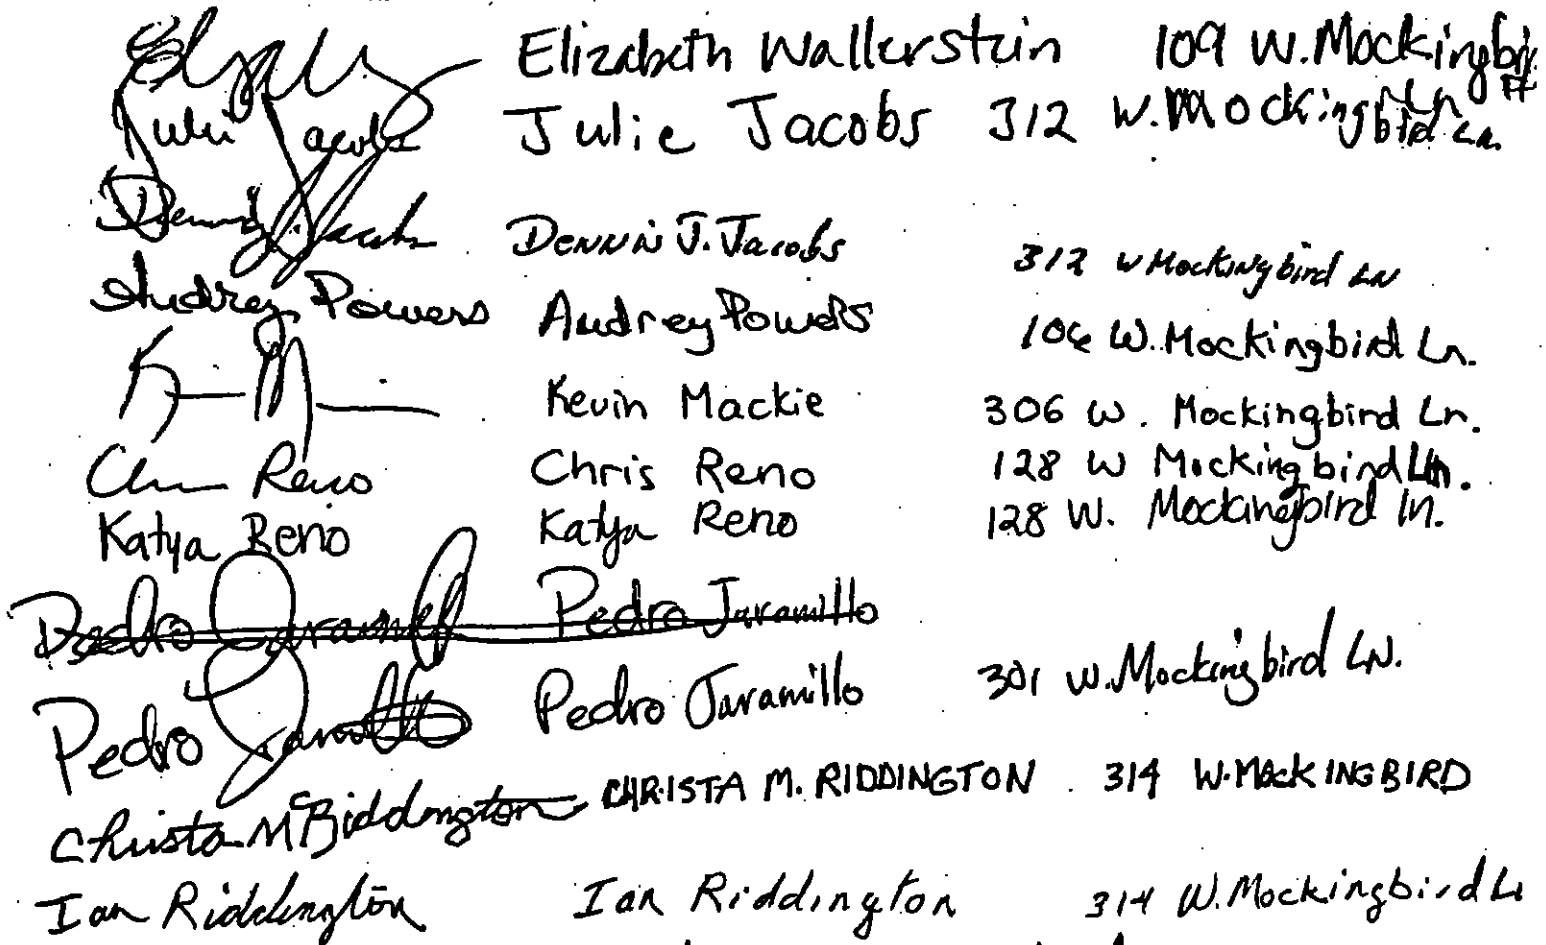 Elizabeth Wallerstein 109 W. Mockingbird Ln
Julie Jacobs Julie Jacobs 312 W. Mockingbird Ln.
Dennis J. Jacobs Dennis J. Jacobs 312 W Mockingbird LN
Audrey Powers Audrey Powers 106 W. Mockingbird Ln.
Kevin Mackie 306 W. Mockingbird Ln.
Chris Reno Chris Reno 128 W Mockingbird Ln.
Katya Reno Katya Reno 128 W. Mockingbird ln.
Pedro Jaramillo Pedro Jaramillo
Pedro Jaramillo Pedro Jaramillo 301 W. Mockingbird LN.
Christa M Riddington CHRISTA M. RIDDINGTON 314 W. MOCKINGBIRD
Ian Riddington Ian Riddington 314 W. Mockingbird L